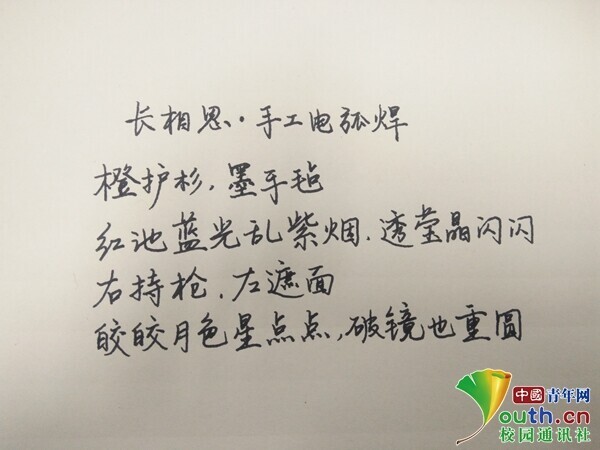 长相思·手工电弧焊
橙护衫，墨手毡
红池蓝光乱紫烟，透莹晶闪闪
右持枪，左遮面
皎皎月色星点点，破镜也重圆
中國青年网
youth.cn
校园通讯社